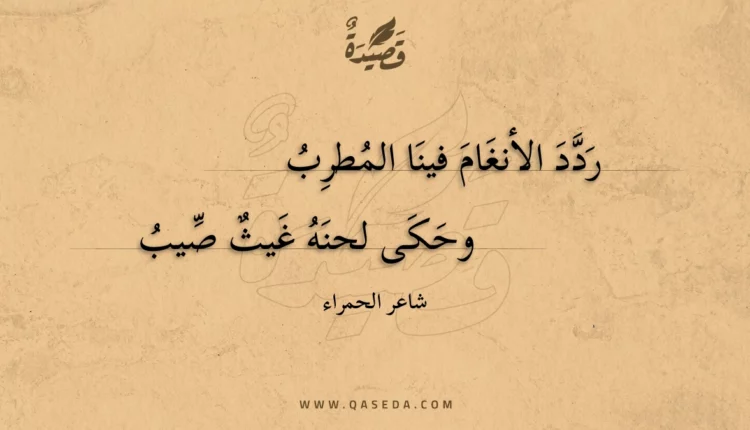 قَصِيدَةٌ
رَدَّدَ الأنغَامَ فينَا المُطرِبُ
وحَكَى لحنَهُ غَيثٌ صِّيبُ
شاعر الحمراء
WWW.QASEDA.COM